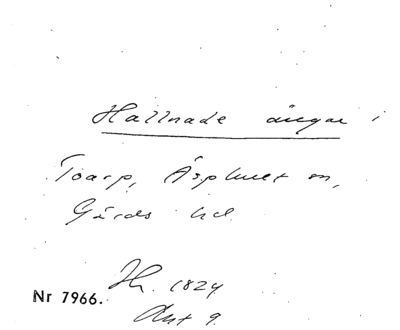 Hallnade ängar i
Toarp, Äsphult sn,
Gärds hd.
Nr 7966. Jh. 1824
Akt 9.